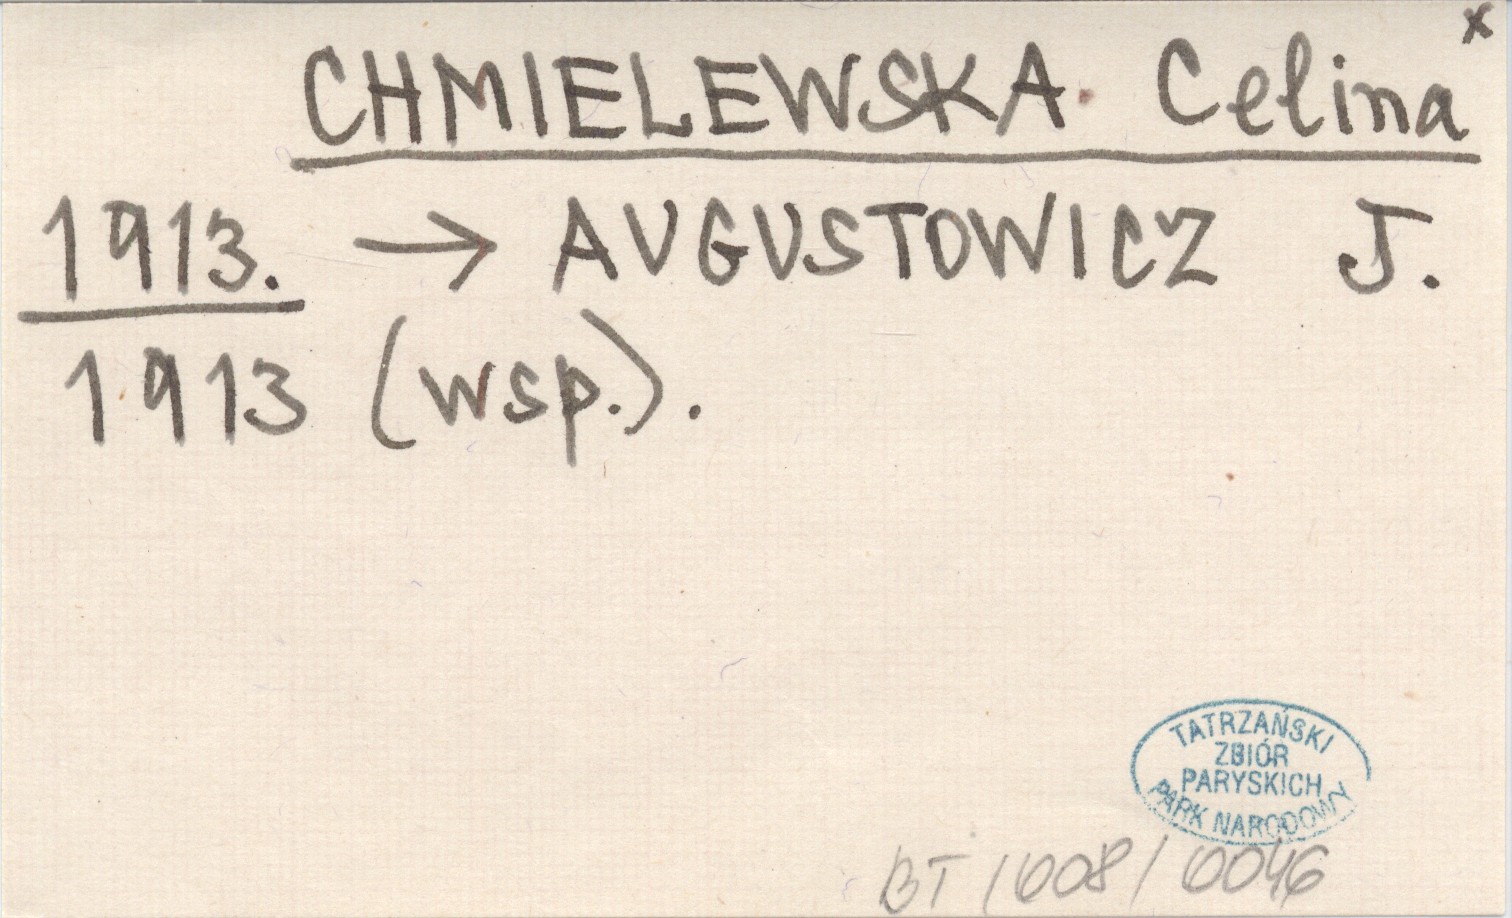 x
CHMIELEWSKA Celina
1913. → AUGUSTOWICZ J.
1913 (wsp.).
TATRZAŃSKI
ZBIÓR
PARYSKICH
PARK NARODOWY
BT/008/0046